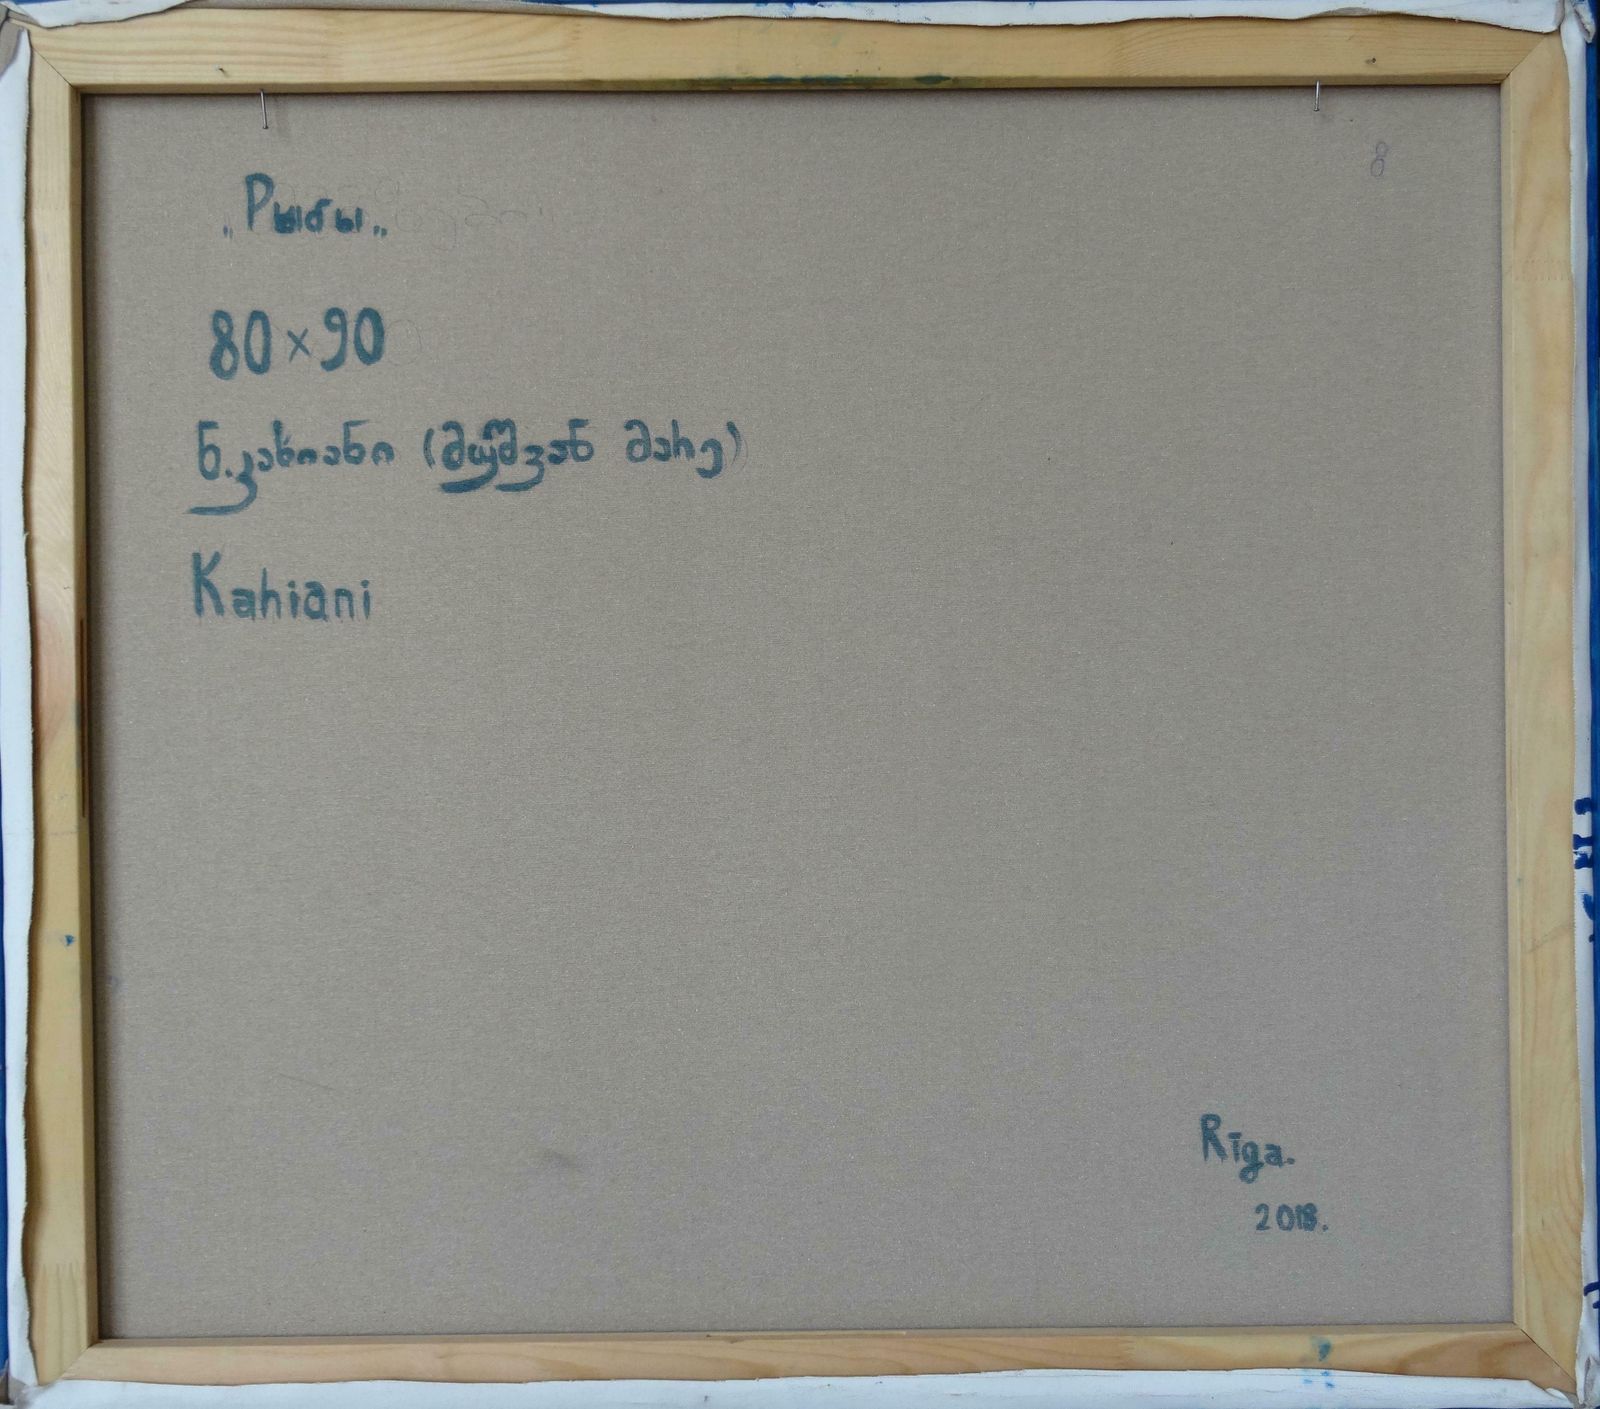 „Рыбы„
8
80×90
ნ.კახიანი (მუშვან მარე)
Kahiani
Rīga.
2018.